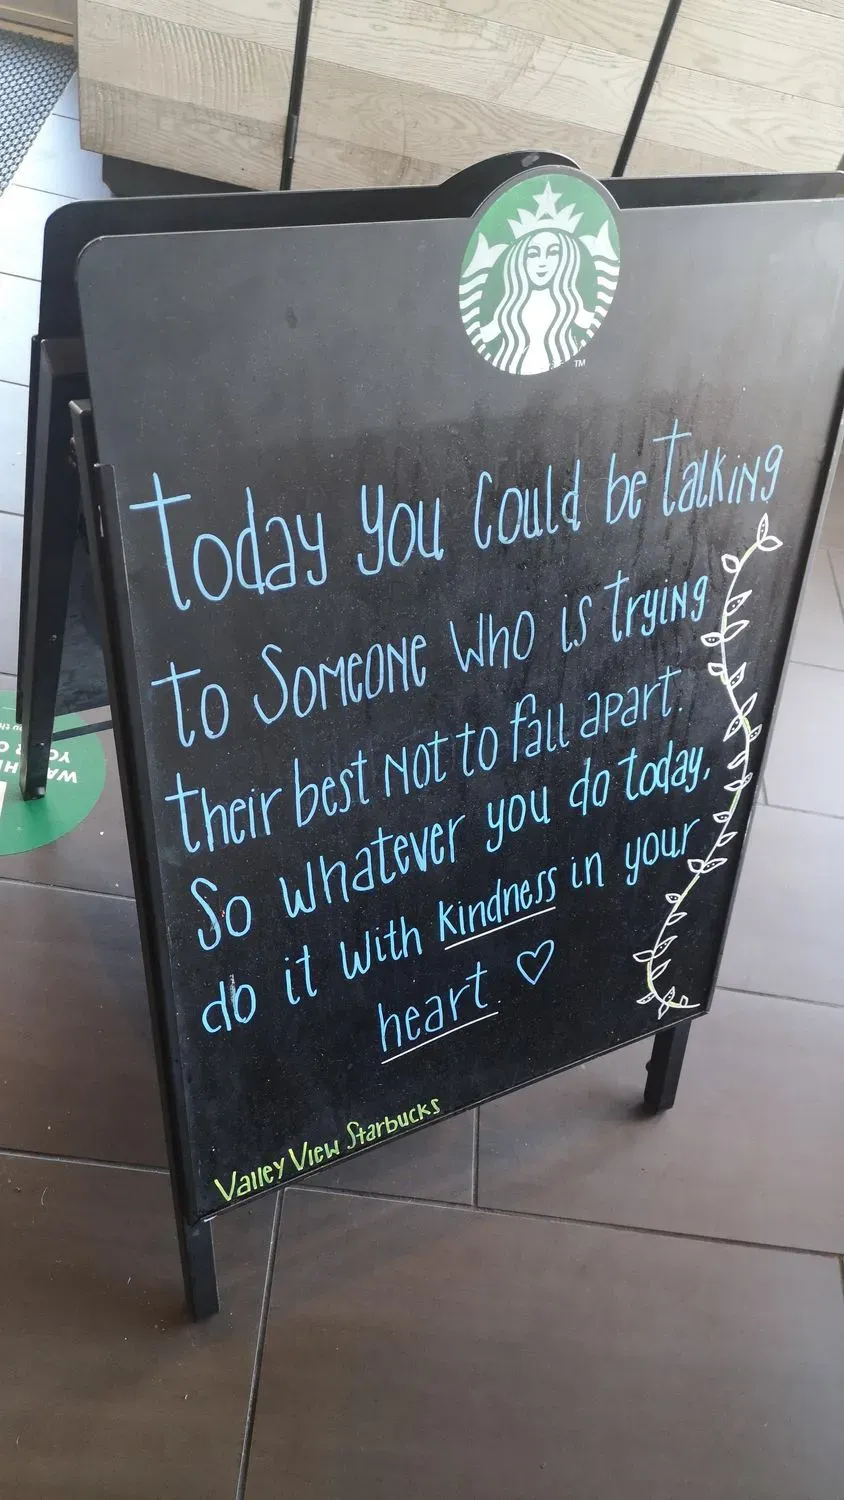 TM
Today you could be talking
to Someone who is trying
their best not to fall apart.
So whatever you do today,
do it with kindness in your
heart ♡
Valley View Starbucks